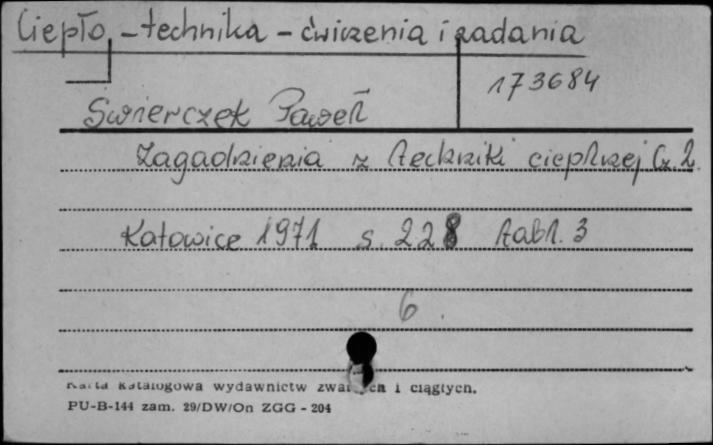 Ciepło - technika - ćwiczenia i zadania
173684
Świerczek Paweł
Zagadnienia z techniki cieplnej Cz. 2
Katowice 1971 s. 228 tabl. 3
6
Karta katalogowa wydawnictw zwartych i ciągłych.
PU-B-144 zam. 29/DW/On ZGG - 204